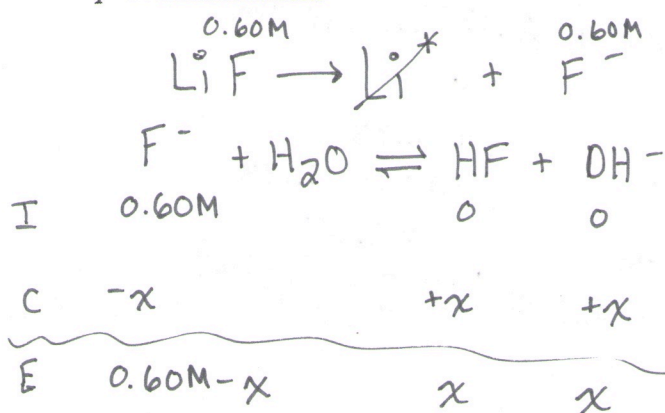 0.60M 0.60M
LiF → Li⁺ + F⁻
F⁻ + H₂O ⇌ HF + OH⁻
I 0.60M 0 0
C -x +x +x
E 0.60M-x x x